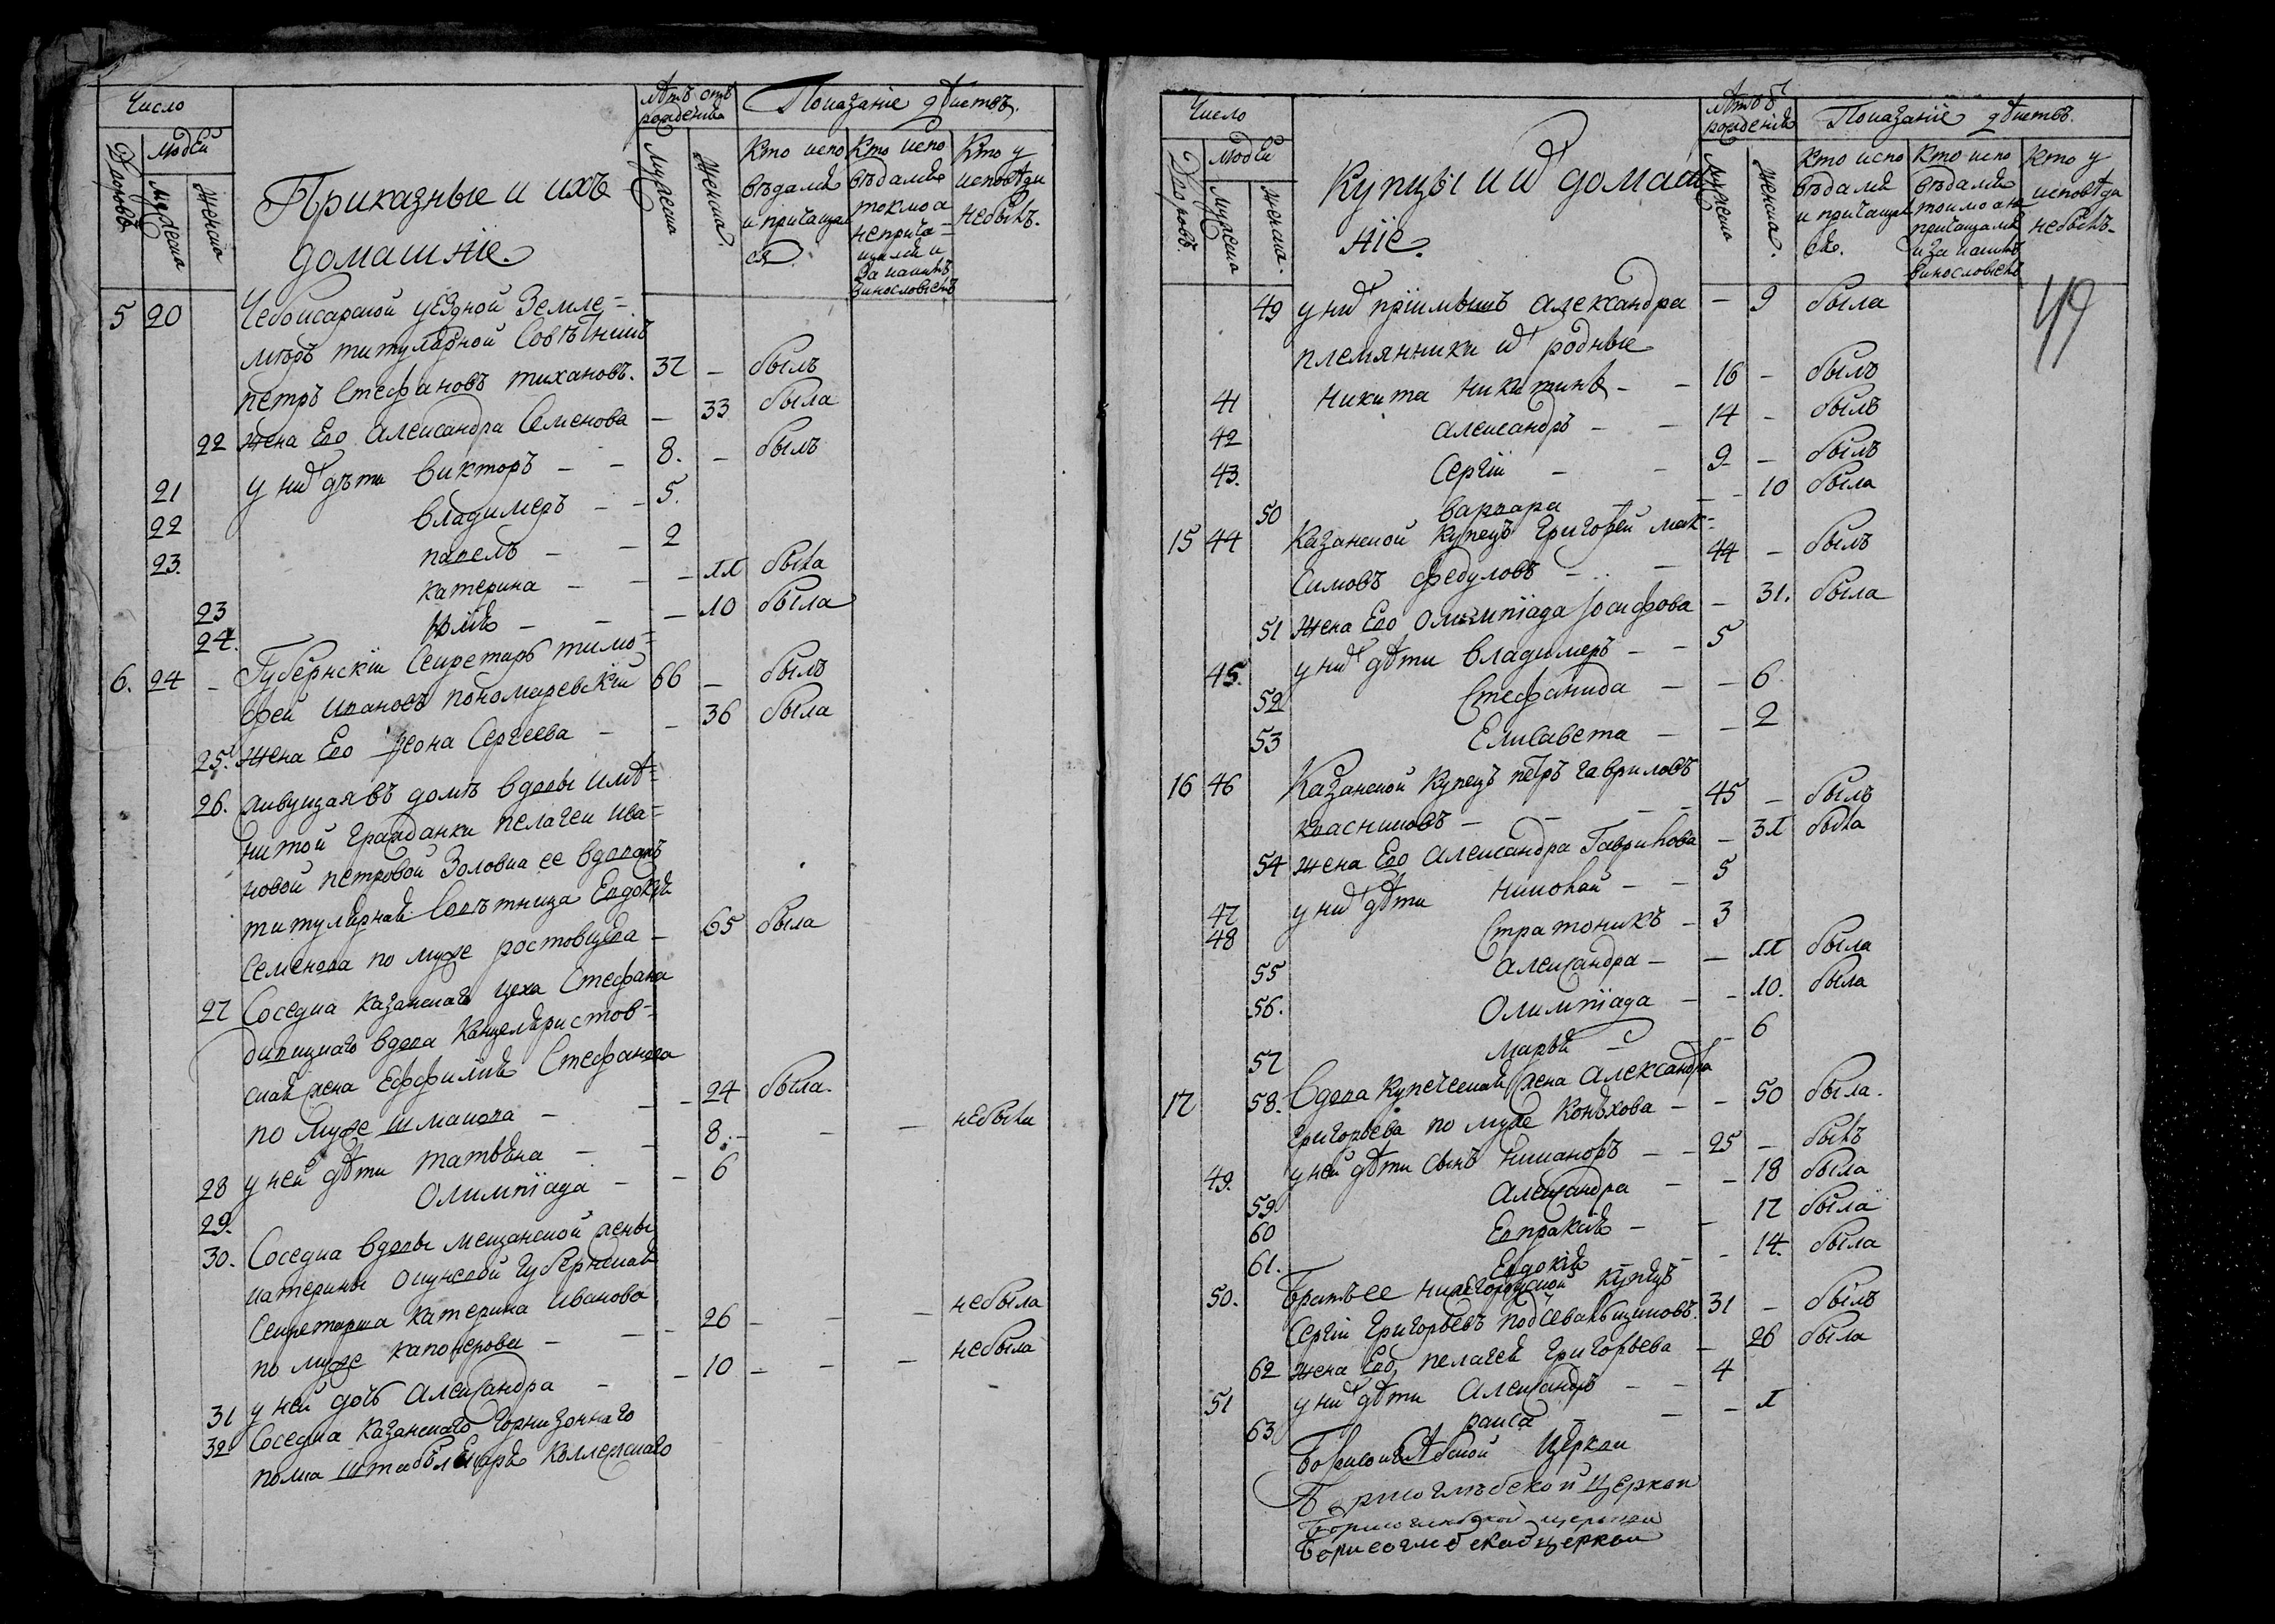 Число
Людей
Дворовъ
Мужеска
Женска
Приказные и ихъ
домашніе.
лѣтъ отъ
рожденія
Мужеска
Женска.
Показаніе дѣиствъ.
Кто испо
вѣдался
и причащал
ся
Кто испо
вѣдался
токмо а
неприча-
щался и
за какимъ
винословіемъ
Кто у
исповѣди
небылъ.
5 20 Чебоксарской уездной Земле=
мѣръ титулярной Совѣтникъ
петръ Стефановъ тихановъ. 37 - былъ
22 жена Его Александра Семенова - 33 была
21 у них дѣти викторъ - - 8. - былъ
22 владимеръ - - 5.
23. павелъ - - 2
23 катерина - - - 11 была
24. юлія - - - 10 была
6. 24 - Губернскіи Секретарь тимо=
фей Ивановъ пономаревскіи 66 - былъ
25. жена Его Сергеева - - 36 была
26. живущая въ домѣ вдовы имѣ=
нитой гражданки пелагеи ива=
новой петровой Золовка ее вдовая
титулярная Совѣтница Евдокія
Семенова по муже ростовцева - 65 была
27 Соседка казанскаго цеха Стефана
вдова Канцеляристов-
ская жена Ефимія Стефанова
по муже шмакова - - - 24 была.
28 у ней дѣти татьяна - - 8. - - - небыла
29. Олимпіада - - 6
30. Соседка вдовы мещанской жены
катерины Губернская
Секретарша катерина Иванова
по муже - - - 26 - - - небыла
31 у ней дочь Александра - - 10 - - - небыла
32 Соседка казанскаго горнизоннаго
полка штабъ Лекаря коллежскаго
Число
Людей
Дворовъ.
Мужеска
Женска.
Купцы и их домаш
ніе.
лѣтъ отъ
рожденія
Мужеска
Женска.
Показаніе дѣиствъ.
Кто испо
вѣдался
и причащал
ся.
Кто испо
вѣдался
токмо а не
причащался
и за какимъ
винословіемъ
Кто у
исповѣди
небылъ.
49
49 у них пріимышъ Александра - 9 была
племянники их родные
41 Никита Никитинъ - - 16 - былъ
42 Александръ - - 14 - былъ
43. Сергіи - - 9 - былъ
50 варвара - - - 10 была
15 44 Казанской Купецъ Григорей мак=
симовъ федуловъ - - - 44 - былъ
51 Жена Его Олимпіада Іосифова - 31. была
45. у них дѣти владимеръ - - 5
52 Стефанида - - 6
53 Елисавета - - 2
16 46 Казанской Купецъ петръ гавриловъ
квасниковъ - - - - 45 - былъ
54 жена Его Александра Гаврилова - 31 была
47 у них дѣти Николай - - 5
48 Стратоникъ - 3
55 Александра - - 11 была
56. Олимпіада - - 10. была
57 марья - - - 6
17 58. Вдова Купеческая жена Александра
Григорьева по муже Коняхова - - 50 была.
49. у ней дѣти сынъ Никаноръ - - 25 - былъ
59 Александра - - 18 была
60 Евпраксія - - 17 была
61. Евдокія - - - 14. была
50. Братъ ее нижегородской Купецъ
Сергіи Григорьевъ подсевальщиковъ 31 - былъ
62 жена Его пелагея Григорьева - 26 была
51 у них дѣти Александръ - - 4
63 раиса - - - 1
Борисоглѣбской Церкви
Борисоглѣбской Церкви
Борисоглебской церкви
Борисоглебской церкви